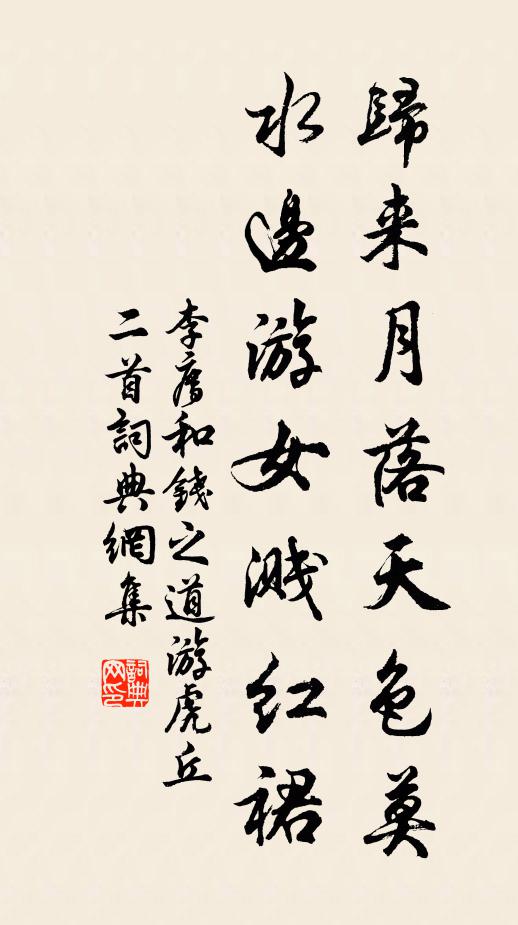 歸来月落天色莫
水邊游女濺紅裙
李廌和錢之道游虎丘
二首詞典網集
詞典网印